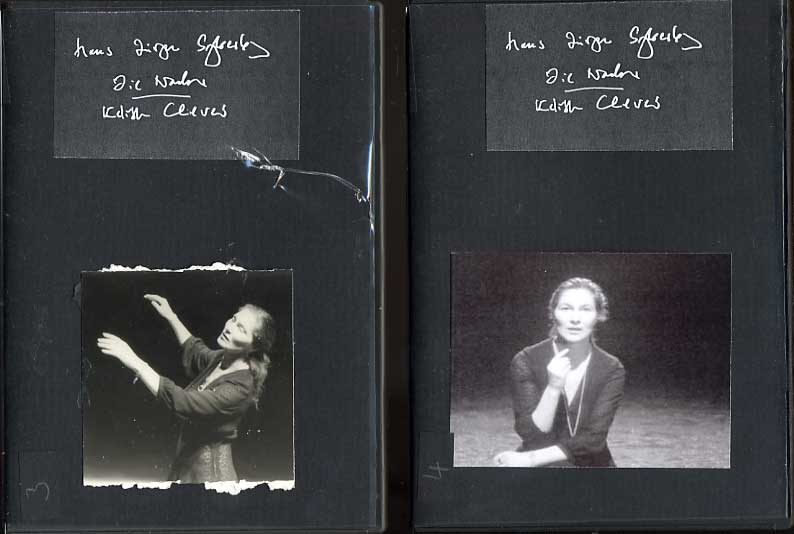 Hans Jürgen Syberberg
Die Nacht
Edith Clever
3
Hans Jürgen Syberberg
Die Nacht
Edith Clever
4